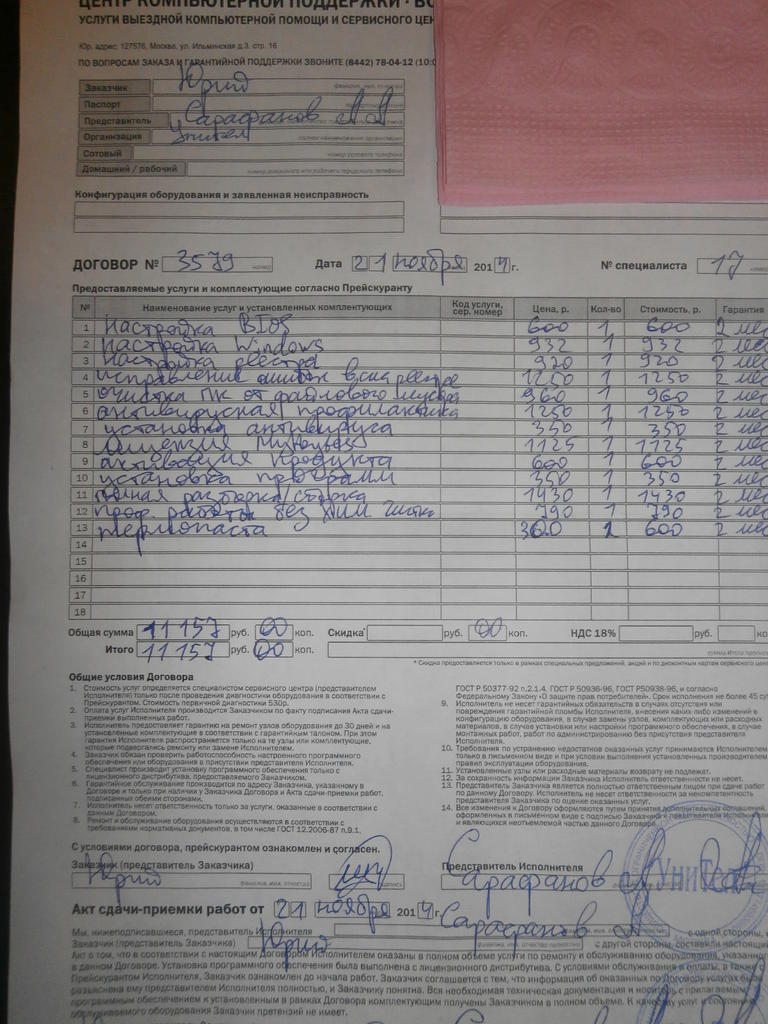 ЦЕНТР КОМПЬЮТЕРНОЙ ПОДДЕРЖКИ
УСЛУГИ ВЫЕЗДНОЙ КОМПЬЮТЕРНОЙ ПОМОЩИ И СЕРВИСНОГО
Юр. адрес: 127576, Москва, ул. Ильминская д.3. стр. 16
ПО ВОПРОСАМ ЗАКАЗА И ГАРАНТИЙНОЙ ПОДДЕРЖКИ ЗВОНИТЕ (8442) 78-04-12
Заказчик Юрий
Паспорт
Представитель Сарафанов А А
Организация Унител
Сотовый номер сотового телефона
Домашний / рабочий номер домашнего или рабочего городского телефона
Конфигурация оборудования и заявленная неисправность
ДОГОВОР № 3579 номер Дата 21 ноября 2014 г. № специалиста 17
Предоставляемые услуги и комплектующие согласно Прейскуранту
№ Наименование услуг и установленных комплектующих Код услуги, сер. номер Цена, р. Кол-во Стоимость, р. Гарантия
1 Настройка BIOS 600 1 600 2 мес
2 Настройка Windows 932 1 932 2 мес
3 Настройка реестра 920 1 920 2 мес
4 исправление ошибок в сис реестре 1250 1 1250 2 мес
5 очистка ПК от файлового мусора 960 1 960 2 мес
6 антивирусная профилактика 1250 1 1250 2 мес
7 установка антивируса 350 1 350 2 мес
8 Лицензия 1125 1 1125 2 мес
9 активация продукта 600 1 600 2 мес
10 установка программ 350 1 350 2 мес
11 полная разборка/сборка 1430 1 1430 2 мес
12 проф. работы без хим чистки 790 1 790 2 мес
13 термопаста 600 2 мес
14
15
16
17
18
Общая сумма 11157 руб. 00 коп. Скидка* руб. 00 коп. НДС 18% руб.
Итого 11157 руб. 00 коп.
* Скидка предоставляется только в рамках специальных предложений, акций и по дисконтным картам сервисного
Общие условия Договора
1. Стоимость услуг определяется специалистом сервисного центра (представителем
Исполнителя) только после проведения диагностики оборудования в соответствии с
Прейскурантом. Стоимость первичной диагностики 530р.
2. Оплата услуг Исполнителя производится Заказчиком по факту подписания Акта сдачи-
приемки выполненных работ.
3. Исполнитель предоставляет гарантию на ремонт узлов оборудования до 30 дней и на
установленные комплектующие в соответствии с гарантийным талоном. При этом
гарантия Исполнителя распространяется только на те узлы или комплектующие,
которые подвергались ремонту или замене Исполнителем.
4. Заказчик обязан проверить работоспособность настроенного программного
обеспечения или оборудования в присутствии представителя Исполнителя.
5. Специалист производит установку программного обеспечения только с
лицензионного дистрибутива, предоставляемого Заказчиком.
6. Гарантийное обслуживание производится по адресу Заказчика, указанному в
Договоре и только при наличии у Заказчика Договора и Акта сдачи-приемки работ,
подписанных обеими сторонами.
7. Исполнитель несет ответственность только за услуги, оказанные в соответствии с
данным Договором.
8. Ремонт и обслуживание оборудования осуществляются в соответствии с
требованиями нормативных документов, в том числе ГОСТ 12.2006-87 п.9.1.
ГОСТ Р 50377-92 п.2.1.4, ГОСТ Р 50936-96, ГОСТ Р50938-96, и согласно
Федеральному Закону «О защите прав потребителей». Срок исполнения не более 45
9. Исполнитель не несет гарантийных обязательств в случаях отсутствия или
повреждения гарантийной пломбы Исполнителя, внесения каких-либо изменений в
конфигурацию оборудования, в случае замены узлов, комплектующих и расходных
материалов, в случае установки или настройки программного обеспечения, в случае
монтажных работ, работ по администрированию без присутствия представителя
Исполнителя.
10. Требования по устранению недостатков оказанных услуг принимаются Исполнителем
только в письменном виде и при условии выполнения установленных производителем
правил эксплуатации оборудования.
11. Установленные узлы или расходные материалы возврату не подлежат.
12. За сохранность информации Заказчика Исполнитель ответственности не несет.
13. Представитель Заказчика является полностью ответственным лицом при сдаче работ
по данному Договору. Исполнитель не несет ответственности за некомпетентность
представителя Заказчика по оценке оказанных услуг.
14. Все изменения к Договору оформляются путем принятия дополнительных соглашений,
оформленных в письменном виде с подписью Заказчика и представителя Исполнителя
и являющихся неотъемлемой частью данного Договора.
С условиями договора, прейскурантом ознакомлен и согласен.
Заказчик (представитель Заказчика) Представитель Исполнителя
Юрий Сарафанов А
УниТел
Акт сдачи-приемки работ от 21 ноября 2014 г. Сарафанов А
Мы, нижеподписавшиеся, представитель Исполнителя с одной стороны, и
Заказчик (представитель Заказчика) Юрий с другой стороны, составили настоящий
Акт о том, что в соответствии с настоящим Договором Исполнителем оказаны в полном объеме услуги по ремонту и обслуживанию оборудования, указанные
в данном Договоре. Установка программного обеспечения была выполнена с лицензионного дистрибутива. С условиями обслуживания и оплаты, а также
Прейскурантом Исполнителя, Заказчик ознакомлен до начала работ. Заказчик соглашается с тем, что информация об оказанных по Договору услугах была
разъяснена ему представителем Исполнителя полностью, и Заказчику понятна. Вся необходимая техническая документация и носитель с прилагаемым
программным обеспечением к установленным в рамках Договора комплектующим получены Заказчиком в полном объеме. К качеству услуг и состоянию
обслуживаемого оборудования Заказчик претензий не имеет.